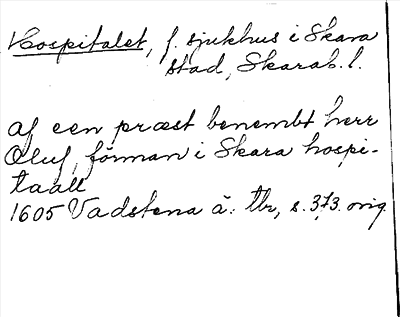 Hospitalet, f. sjukhus i Skara
stad, Skarab. l.
af een præst benembt herr
Oluf, förman i Skara hospi-
taall
1605 Vadstena ä: tbr, s. 373. orig.